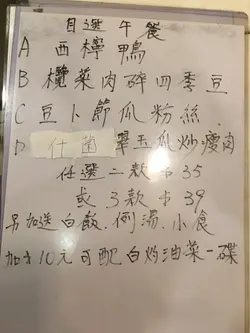 自選午餐
A 西檸鴨
B 欖菜肉碎四季豆
C 豆卜節瓜粉絲
D 什菌翠玉瓜炒瘦肉
任選二款$35
或3款$39
另加送白飯.例湯.小食
加$10元可配白灼油菜一碟